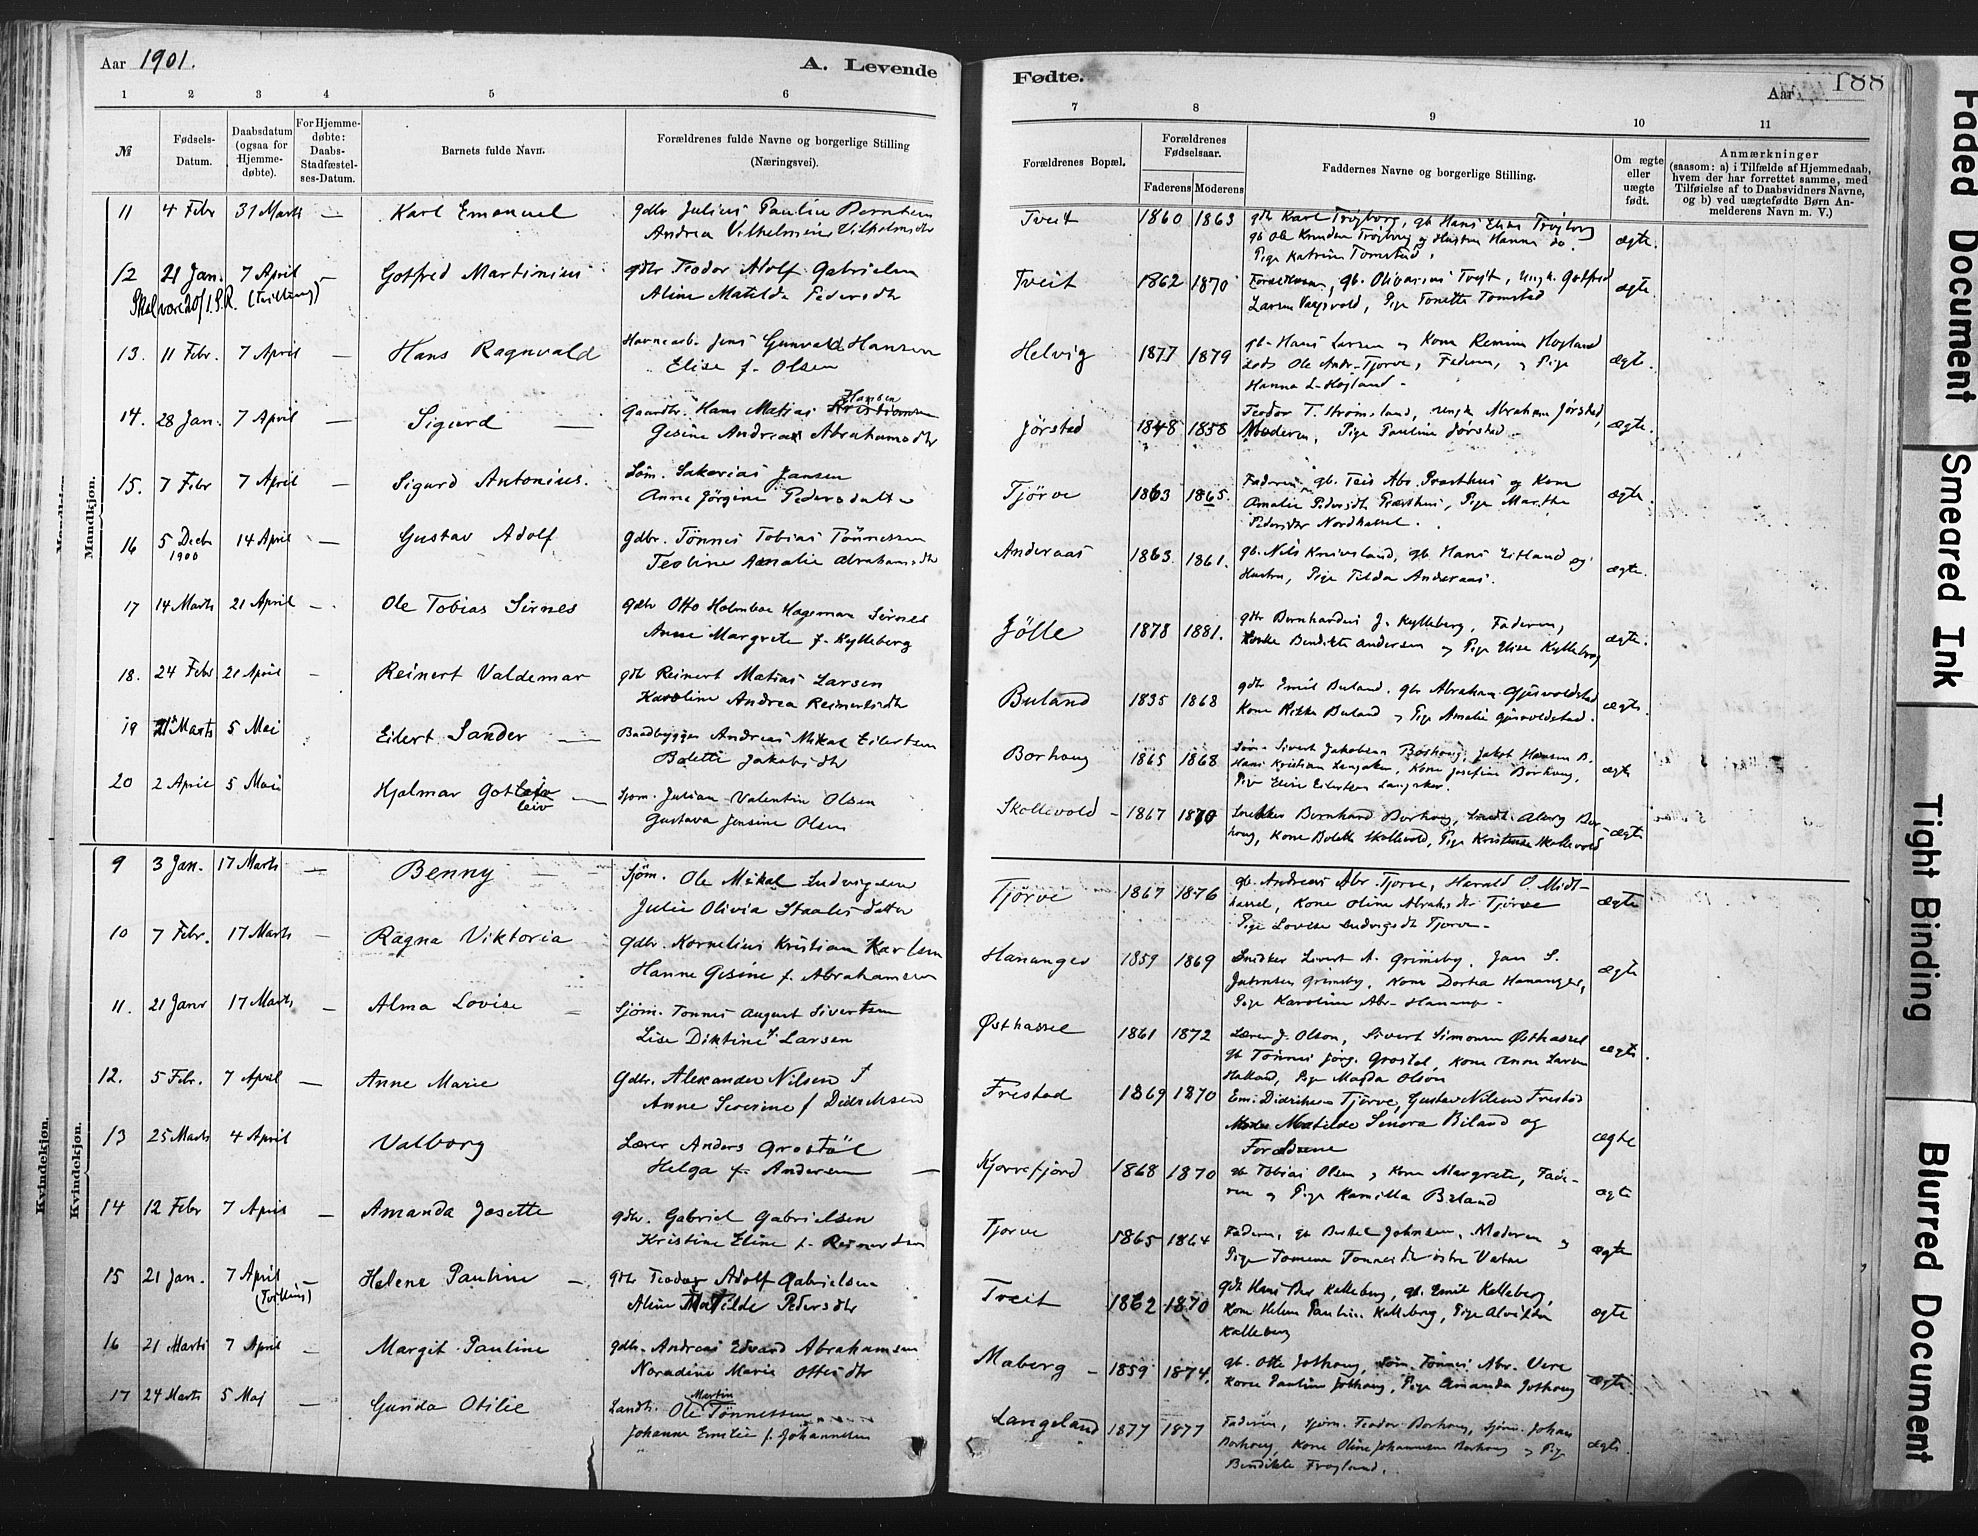 Aar 1901.
A. Levende
Fødte.
Aar 188
1 2 3 4 5 6 7 8 9 10 11
№
Fødsels-
Datum.
Daabsdatum
(ogsaa for
Hjemme-
døbte).
For Hjemme-
døbte:
Daabs-
Stadfæstel-
ses-Datum.
Barnets fulde Navn.
Forældrenes fulde Navne og borgerlige Stilling
(Næringsvei).
Forældrenes Bopæl.
Forældrenes
Fødselsaar.
Faderens Moderens
Faddernes Navne og borgerlige Stilling.
Om ægte
eller
uægte
født.
Anmærkninger
(saasom: a) i Tilfælde af Hjemmedaab,
hvem der har forrettet samme, med
Tilføielse af to Daabsvidners Navne,
og b) ved uægtefødte Børn An-
melderens Navn m. V.)
Mandkjøn.
11 4 Febr 31 Marts — Karl Emanuel
gdbr Julius Paulin Berntsen
Andrea Vilhelmine Vilhelmsdtr
Tveit 1860 1863
gdb Karl Trøjborg, gb Hans Elias Trøjborg
gb Ole Knudsen Trøjborg og Hustru Hanna do.
Pige Katrine Tomstad.
ægte.
12 21 Jan. 7 April — Gotfred Martinius
Skal være 20/1. S.R. (Tvilling)
gdbr Teodor Adolf Gabrielsen
Aline Matilde Pedersdtr
Tveit 1862 1870
Forældrene, gb. Olivarius Tveit, ungk. Gotfred
Larsen Vaagsvold, Pige Tonette Tomstad
ægte.
13. 11 Febr. 7 April — Hans Ragnvald
Havnearb. Jens Gunvald Hansen
Elise f. Olsen
Helvig 1877 1879
gb. Hans Larsen og Kone Højland
Lods Ole Andr. Tjørve, Faderen, og Pige
Hanna L. Højland.
ægte.
14. 28 Jan. 7 April — Sigurd —
Gaardbr. Hans Matias Kristiansen
Hansen
Gesine Andrea Abrahamsdtr
Jørstad 1848 1858
Teodor T. Strømsland, ungk Abraham Jørstad,
Moderen, Pige Pauline Jørstad.
ægte.
15. 7 Febr 7 April — Sigurd Antonius.
Søm. Sakarias Jansen
Anne Jørgine Pedersdatter
Tjørve 1863 1865.
Faderen, gb. Teis Abr. Præsthus og Kone
Amalie Pedersdtr Præsthus, Pige Marthe
Pedersdtr Nordhassel.
ægte.
16 5 Decbr 14 April — Gustav Adolf
1900
gdbr. Tönnes Tobias Tönnessen
Teoline Amalie Abrahamsdtr
Anderaas 1863 1861.
gb. Nils Kneivsland, gb. Hans Eitland og
Hustru, Pige Tilda Anderaas.
ægte.
17 14 Marts 21 April — Ole Tobias Sirnes
gdbr Otto Holmboe Hageman Sirnes
Anne Margrete f. Kylleberg
Jølle 1878 1881.
gbr Bernhardus J. Kylleberg, Faderen,
Bendikte Andersen og Pige Elise Kylleberg
ægte.
18. 24 Febr 21 April — Reinert Valdemar
gdb Reinert Matias Larsen
Karoline Andrea Reinertsdtr
Buland 1835 1868
gdb Emil Buland. gbr Abraham Gjervoldstad
Kone Rikka Buland og Pige Amalie Gjervoldstad.
ægte.
19 21 Marts 5 Mai Eilert Sander —
Baadbygger Andreas Mikal Eilertsen
Bolette Jakobsdtr
Borhaug 1865 1868
Søm. Sivert Jakobsen Borhaug, Jakob Hansen B.
Hans Kristian Langaker, Kone Josefine Borhaug,
Pige Elise Eilertsen Langaker.
ægte
20 2 April 5 Mai Hjalmar Gotleiv —
leiv
Sjøm. Julian Valentin Olsen
Gustava Jensine Olsen
Skollevold — 1867 1870
Snekker Bernhard Borhaug, Alberg Bor-
haug, Kone Bolette Skollevold, Pige Kristense Skollevold
ægte
Kvindekjøn.
9 3 Jan. 17 Marts — Benny —
Sjøm. Ole Mikal Ludvigsen
Julie Olivia Staalesdatter
Tjørve 1867 1876
gb. Andreas Abr. Tjørve, Harald O Midt-
hassel, Kone Oline Abrahsdtr Tjørve
Pige Lovise Ludvigsdtr Tjørve.
ægte
10 7 Febr. 17 Marts — Ragna Viktoria
gdbr. Kornelius Kristian Karlsen
Hanne Gesine f. Abrahamsen
Hananger 1859 1869
Snekker Sivert A. Grimsby. Jan S.
Jakobsen Grimsby, Kone Dortea Hananger,
Pige Karoline Abr. Hanang.
ægte
11. 21 Janr 17 Marts — Alma Lovise —
Sjøm. Tønnes August Sivertsen
Lise Diktine f. Larsen
Østhassel 1861 1872
Lærer J. Olson, Sivert Simonsen Østhassel
gb Tønnes Jørg. Grostøl, Kone Anne Larsen
Halland, Pige Magda Olson
ægte.
12. 5 Febr. 7 April — Anne Marie
Gdbr. Alexander Nilsen f
Anne Severine f Didriksen
Frestad 1869 1870
Em. Didriksen Tjørve, Gustav Nilsen Frestad
Matilde Senora Biland og
Forældrene
ægte
13 25 Marts 4 April Valborg
Lærer Anders Grostöl
Helga f. Andersen —
Kjørrefjord 1868 1870
gb Tobias Olsen og Kone Margrete, Fade-
ren og Pige Kamilla Biland
ægte
14 12 Febr 7 April — Amanda Josette
gdbr. Gabriel Gabrielsen
Kristine Eline f. Reinertsen
Tjørve 1865 1864
Faderen, gb Bertel Johnsen, Moderen og
Pige Tomine Tønnesdtr østre Vatne
ægte
15 21 Jan. 7 April — Helene Pauline —
(Tvilling)
gdbr Teodor Adolf Gabrielsen
Aline Matilde Pedersdtr
Tveit 1862 1870
gdb Hans Ber Kalleberg, gb. Emil Kalleberg,
Kone Helene Pauline Kalleberg, Pige Alvilda
Kalleberg
ægte
16 21 Marts 7 April — Margit Pauline
gdbr. Andreas Edvard Abrahamsen
Noradine Marie Ottesdtr
Maberg — 1859 1874.
gb. Otto Jøthaug, Søm. Tønnes Abr. Vere
Kone Pauline Jøthaug, Pige Amanda Jøthaug
ægte.
17 24 Marts 5 Maj — Gunda Otilie
Landh. Ole Martin Tönnessen
Johanne Emilie f. Johannesen
Langeland 1877 1877
Faderen, Sjøm. Teodor Borhaug, Sjøm. Johan
Borhaug, Kone Oline Johannesen Borhaug og Pige
Bendikte Frøyland.
ægte.
Faded Document
Smeared Ink
Tight Binding
Blurred Document